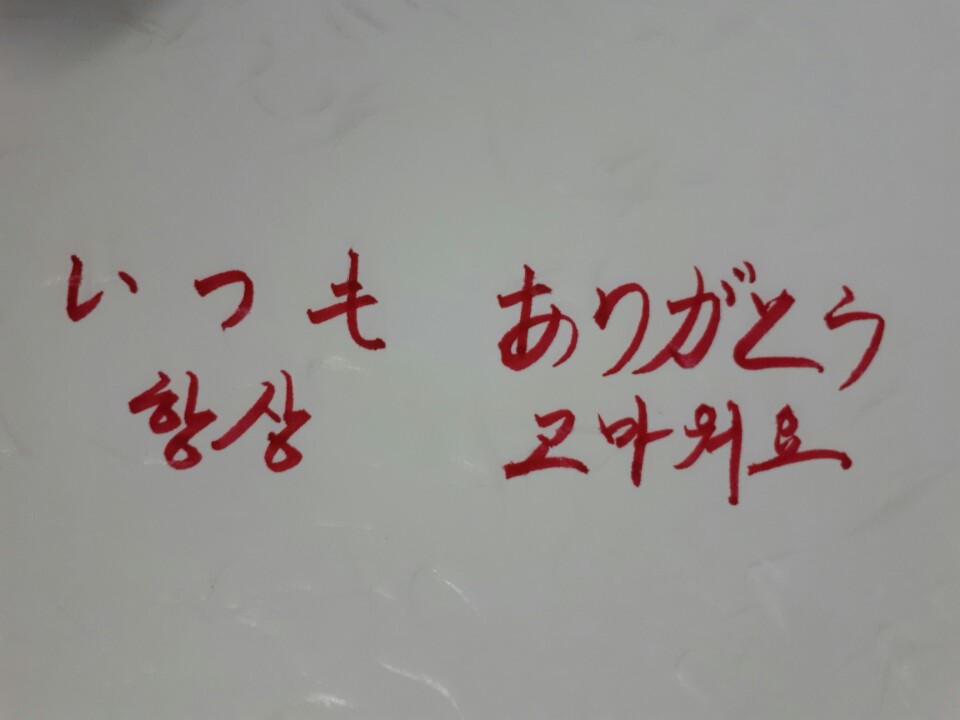 いつも ありがとう
항상 고마워요